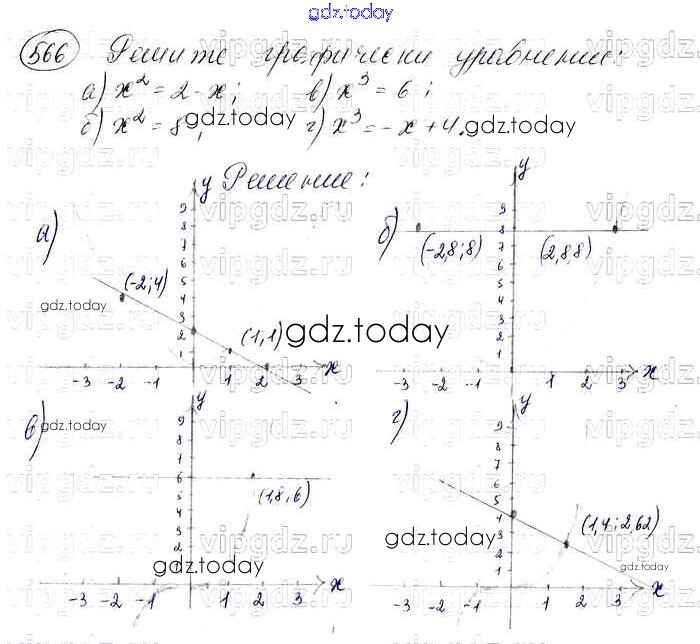 gdz.today
566 Решите графически уравнение:
а) x² = 2 - x; в) x³ = 6;
б) x² = 8; г) x³ = - x + 4.
gdz.today gdz.today
vipgdz.ru vipgdz.ru vipgdz.ru
Решение:
а) y б) y
9 8 7 6 5 4 3 2 1
9 8 7 6 5 4 3 2 1
(-2; 4) (1; 1)
(-2,8; 8) (2,8 8)
gdz.today gdz.today
-3 -2 -1 1 2 3 x
-3 -2 -1 1 2 3 x
в) y г) y
gdz.today
9 8 7 6 5 4 3 2
9 8 7 6 5 4 3 2 1
(1,8; 6) (1,4; 2,62)
gdz.today gdz.today gdz.today
-3 -2 -1 1 2 3 x
-3 -2 -1 1 2 3 x